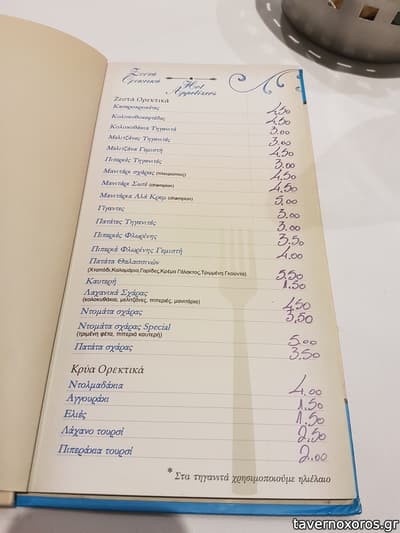 Ζεστά Ορεκτικά
Hot Appetizers
Ζεστά Ορεκτικά
Καυτεροκροκέτες 4,50
Κολοκυθοκεφτέδες 4,50
Κολοκυθάκια Τηγανιτά 3,00
Μελιτζάνες Τηγανιτές 3,00
Μελιτζάνα Γεμιστή 4,50
Πιπεριές Τηγανιτές 3,00
Μανιτάρι σχάρας 4,50
Μανιτάρι Σωτέ (champion) 4,50
Μανιτάρια Αλά Κρεμ (champion) 5,00
Γίγαντες 3,00
Πατάτες Τηγανιτές 3,00
Πιπεριές Φλωρίνης 3,50
Πιπεριά Φλωρίνης Γεμιστή 4,00
Πατάτα Θαλασσινών
(Χταπόδι,Καλαμάρια,Γαρίδες,Κρέμα Γάλακτος,Τριμμένη Γκούντα) 5,50
Καυτερή 1,50
Λαχανικά Σχάρας
(κολοκυθάκια, μελιτζάνες, πιπεριές, μανιτάρια) 4,50
Ντομάτα σχάρας 3,50
Ντομάτα σχάρας Special
(τριμμένη φέτα, πιπεριά καυτερή) 5,00
Πατάτα σχάρας 3,50
Κρύα Ορεκτικά
Ντολμαδάκια 4,00
Αγγουράκι 1,50
Ελιές 1,50
Λάχανο τουρσί 2,50
Πιπεράκια τουρσί 2,00
* Στα τηγανιτά χρησιμοποιούμε ηλιέλαιο
tavernoxoros.gr